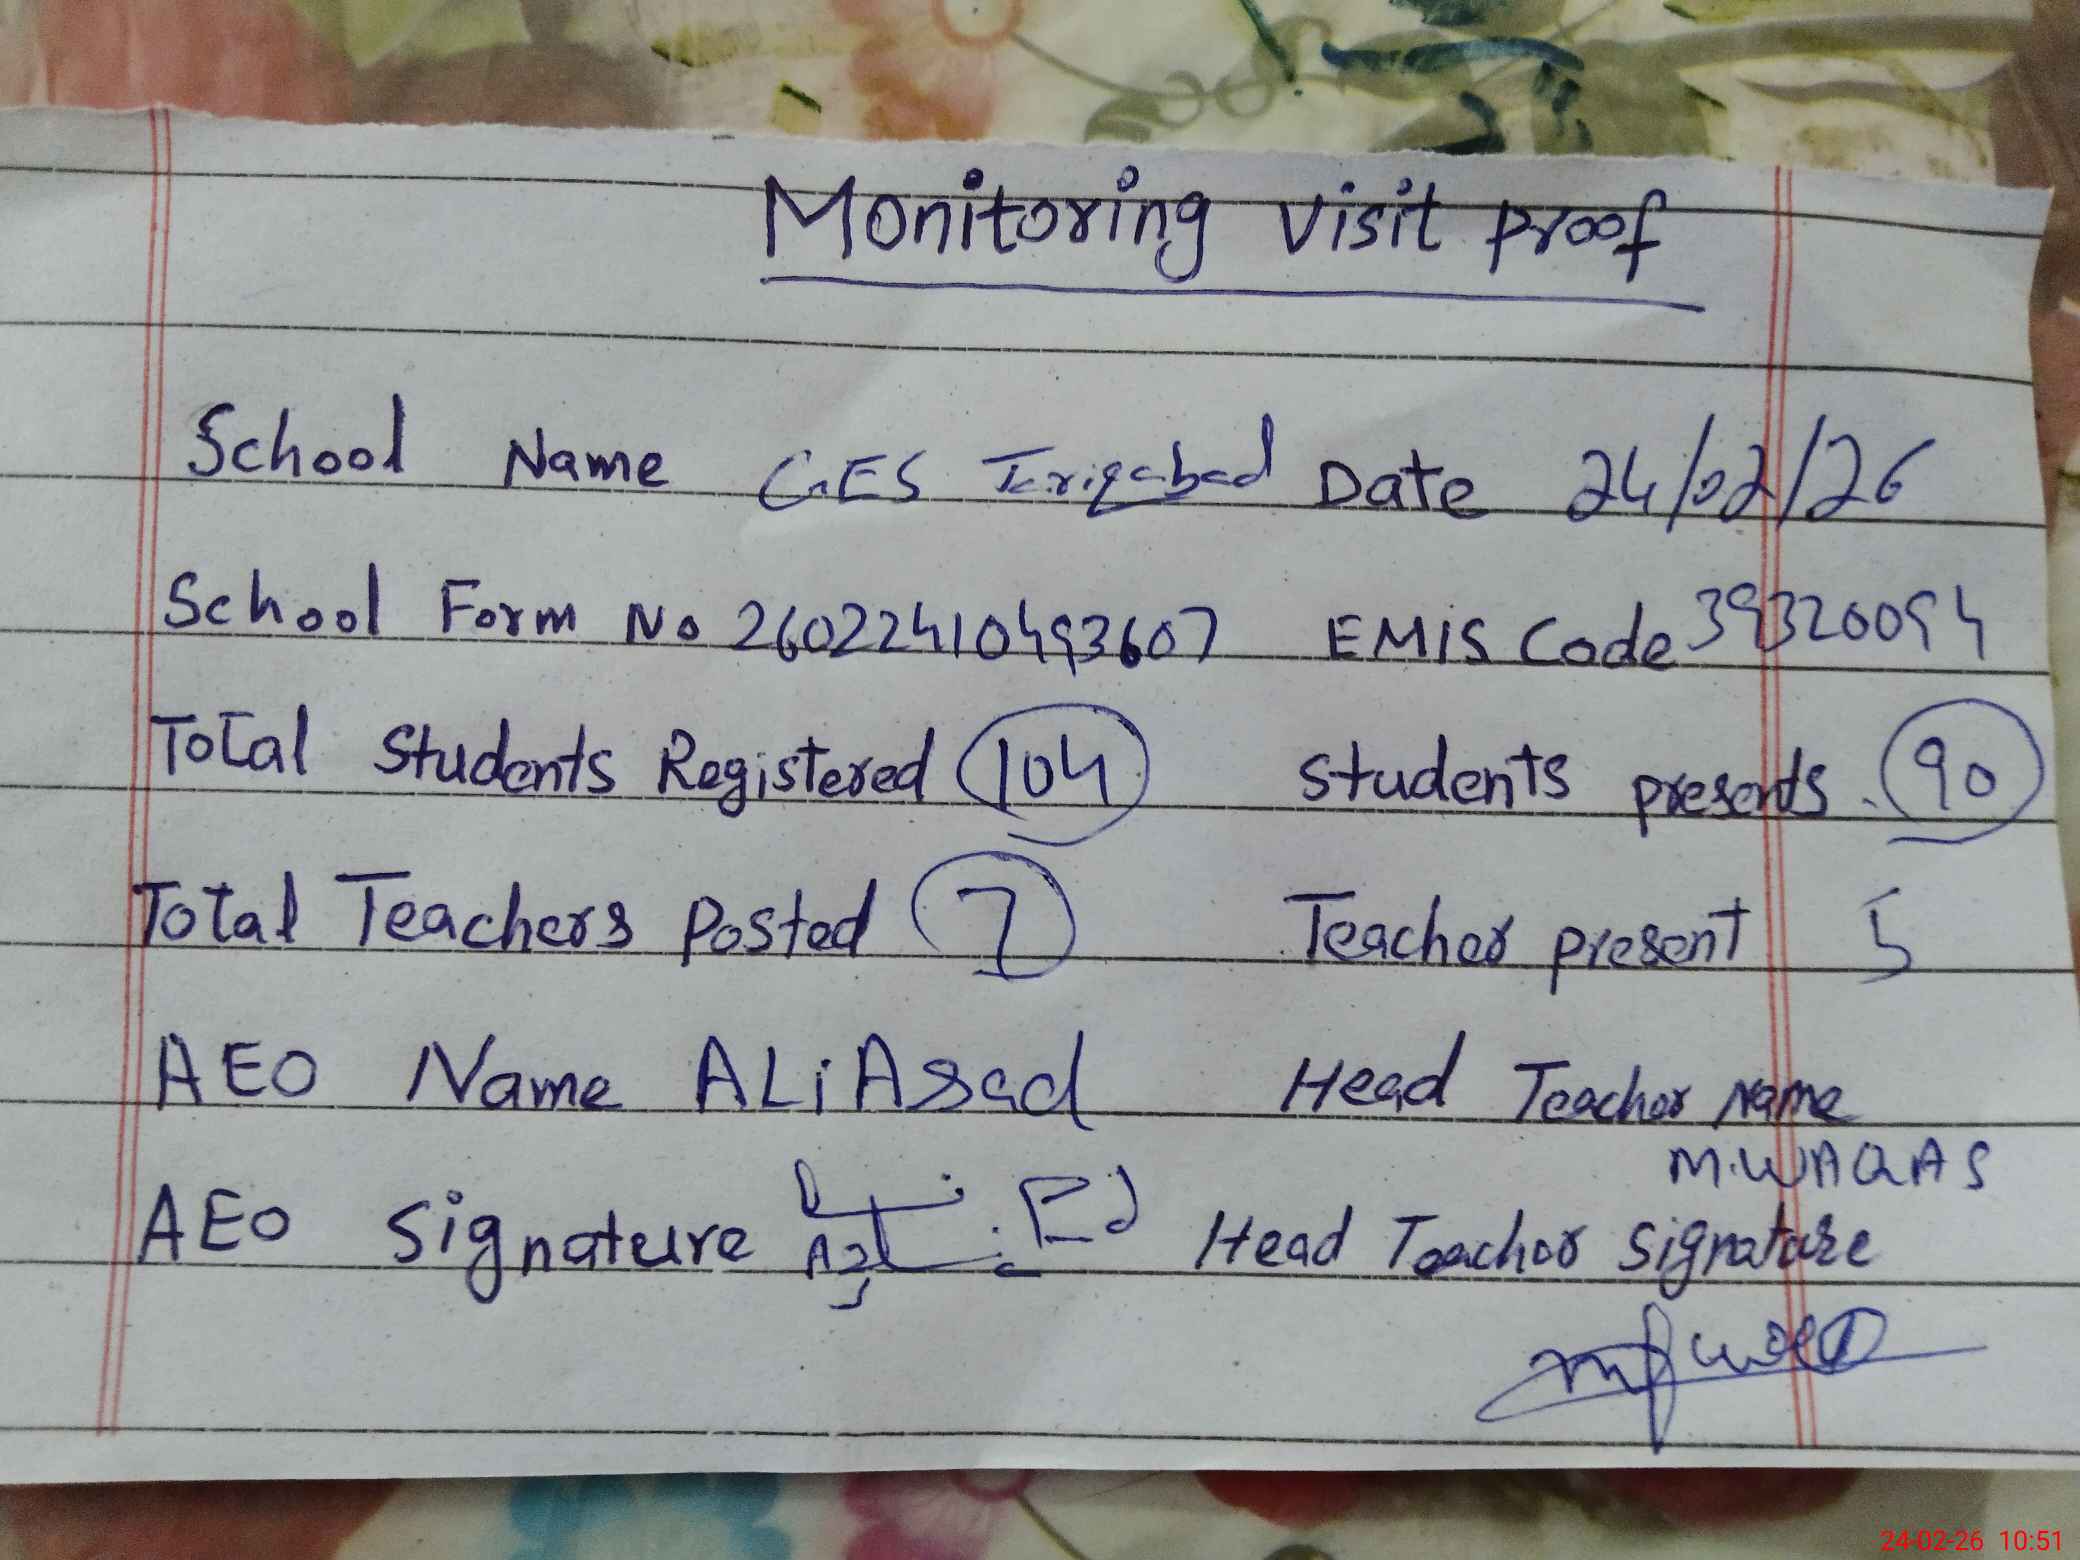 Monitoring visit proof
School Name GES Tariqabad Date 24/02/26
School Form No 26022410493607 EMIS Code 39320094
Total Students Registered 104 Students presents. 90
Total Teachers Posted 7 Teacher present 5
AEO Name ALi Assad Head Teacher Name
M.WAQAS
AEO Signature Head Teacher Signature
24-02-26 10:51